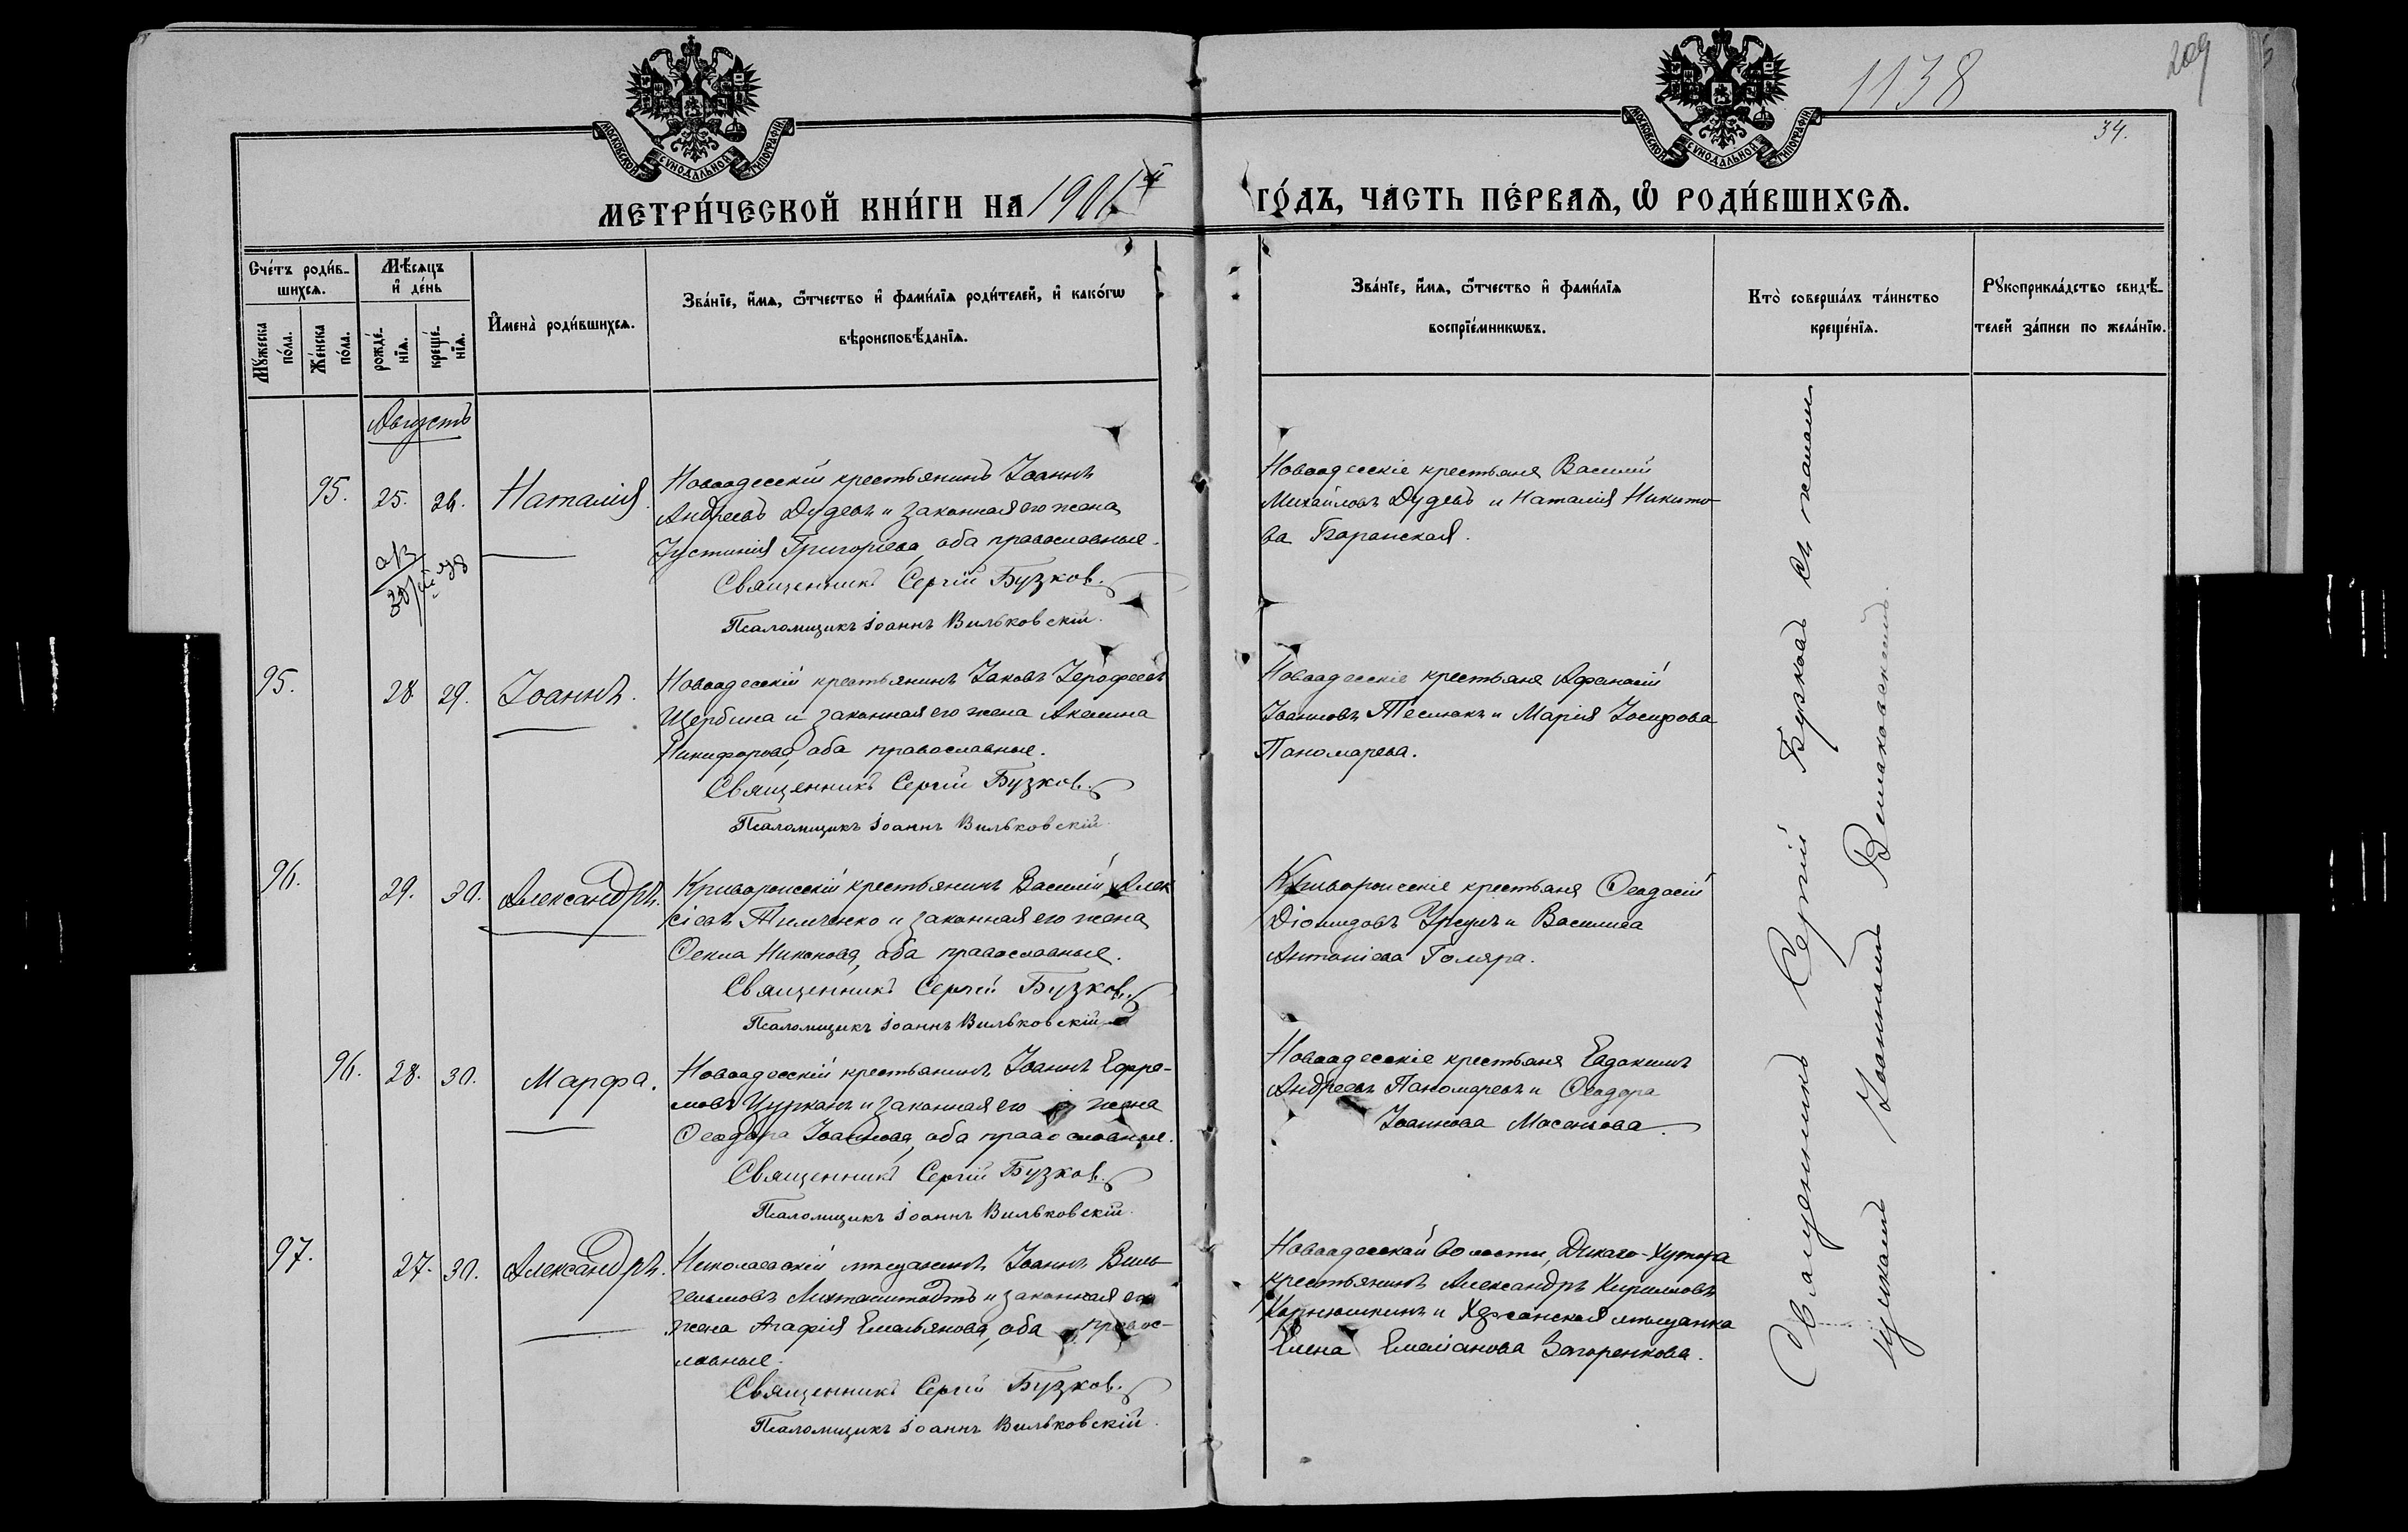 1138
209
34.
МОСКОВСКОЙ СѴНОДАЛЬНОЙ ТИПОГРАФІИ
МОСКОВСКОЙ СѴНОДАЛЬНОЙ ТИПОГРАФІИ
МЕТРИ́ЧЕСКОЙ КНИ́ГИ НА 1901 й ГО́ДЪ, ЧАСТЬ ПЕ́РВАѦ, Ѡ҆ РОДИ́ВШИХСѦ.
Сче́тъ роди́в-
шихсѧ.
Мꙋ́жеска
по́ла.
Же́нска
по́ла.
Мѣ́сѧцъ
и҆ де́нь
рожде́-
нїѧ.
креще́-
нїѧ.
И҆мена̀ роди́вшихсѧ.
Зва́нїе, и҆́мѧ, ѻ҆́тчество и҆ фами́лїѧ роди́телей, и҆ како́гѡ
вѣроисповѣ́данїѧ.
Зва́нїе, и҆́мѧ, ѻ҆́тчество и҆ фами́лїѧ
воспрїе́мникѡвъ.
Кто̀ соверша́лъ та́инство
креще́нїѧ.
Рꙋкоприкла́дство свидѣ́-
телей за́писи по жела́нїю.
Августъ
95. 25. 26. Наталія.
Новоодесскій крестьянинъ Іоаннъ
Андреевъ Дудевъ и законная его жена
Іустинія Григоріева, оба православные.
Священникъ Сергій Бузков.
Псаломщикъ Іоаннъ Вильковскій.
Новоодесскіе крестьяне Василій
Михайловъ Дудевъ и Наталія Никито-
ва Баранская.
95. 28. 29. Іоаннъ.
Новоодесскій крестьянинъ Іаковъ Іерофеевъ
Щербина и законная его жена Акилина
Никифорова, оба православные.
Священникъ Сергій Бузков.
Псаломщикъ Іоаннъ Вильковскій.
Новоодесскіе крестьяне Афанасій
Іоанновъ Теслюкъ и Марія Іосифова
Пономарева.
96. 29. 30. Александръ.
крестьянинъ Василій Алек
сіевъ Тимченко и законная его жена
Ѳекла Никонова, оба православные.
Священникъ Сергій Бузков.
Псаломщикъ Іоаннъ Вильковскій
крестьяне Ѳеодосій
Діомидовъ Урсулъ и Василиса
Антоніева Голяра.
96. 28. 30. Марфа.
Новоодесскій крестьянинъ Іоаннъ Ефре-
мовъ Цурканъ и законная его жена
Ѳеодора Іоаннова, оба православные.
Священникъ Сергій Бузков.
Псаломщикъ Іоаннъ Вильковскій.
Новоодесскіе крестьяне Евдокимъ
Андреевъ Пономаревъ и Ѳеодора
Іоаннова
97. 27. 30. Александръ.
Николаевскій мѣщанинъ Іоаннъ Виль-
гельмовъ и законная его
жена Агафія Емельянова, оба правос-
лавные.
Священникъ Сергій Бузков.
Псаломщикъ Іоаннъ Вильковскій.
Новоодесской волости, Дикаго-Хутора
крестьянинъ Александръ Кирилловъ
Корнюшкинъ и Херсонская мѣщанка
Елена Емеліанова Загоренкова.
Священникъ Сергій Бузковъ съ псалом-
щикомъ Іоанномъ Вильковскимъ.